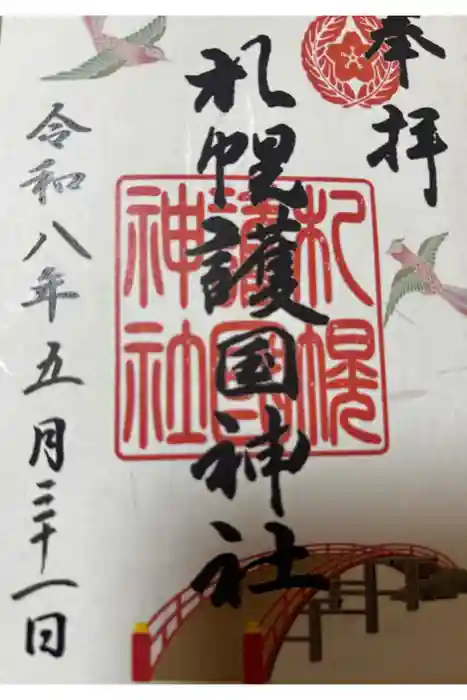 奉拝
札幌護国神社
札幌
護国
神社
令和八年五月三十一日